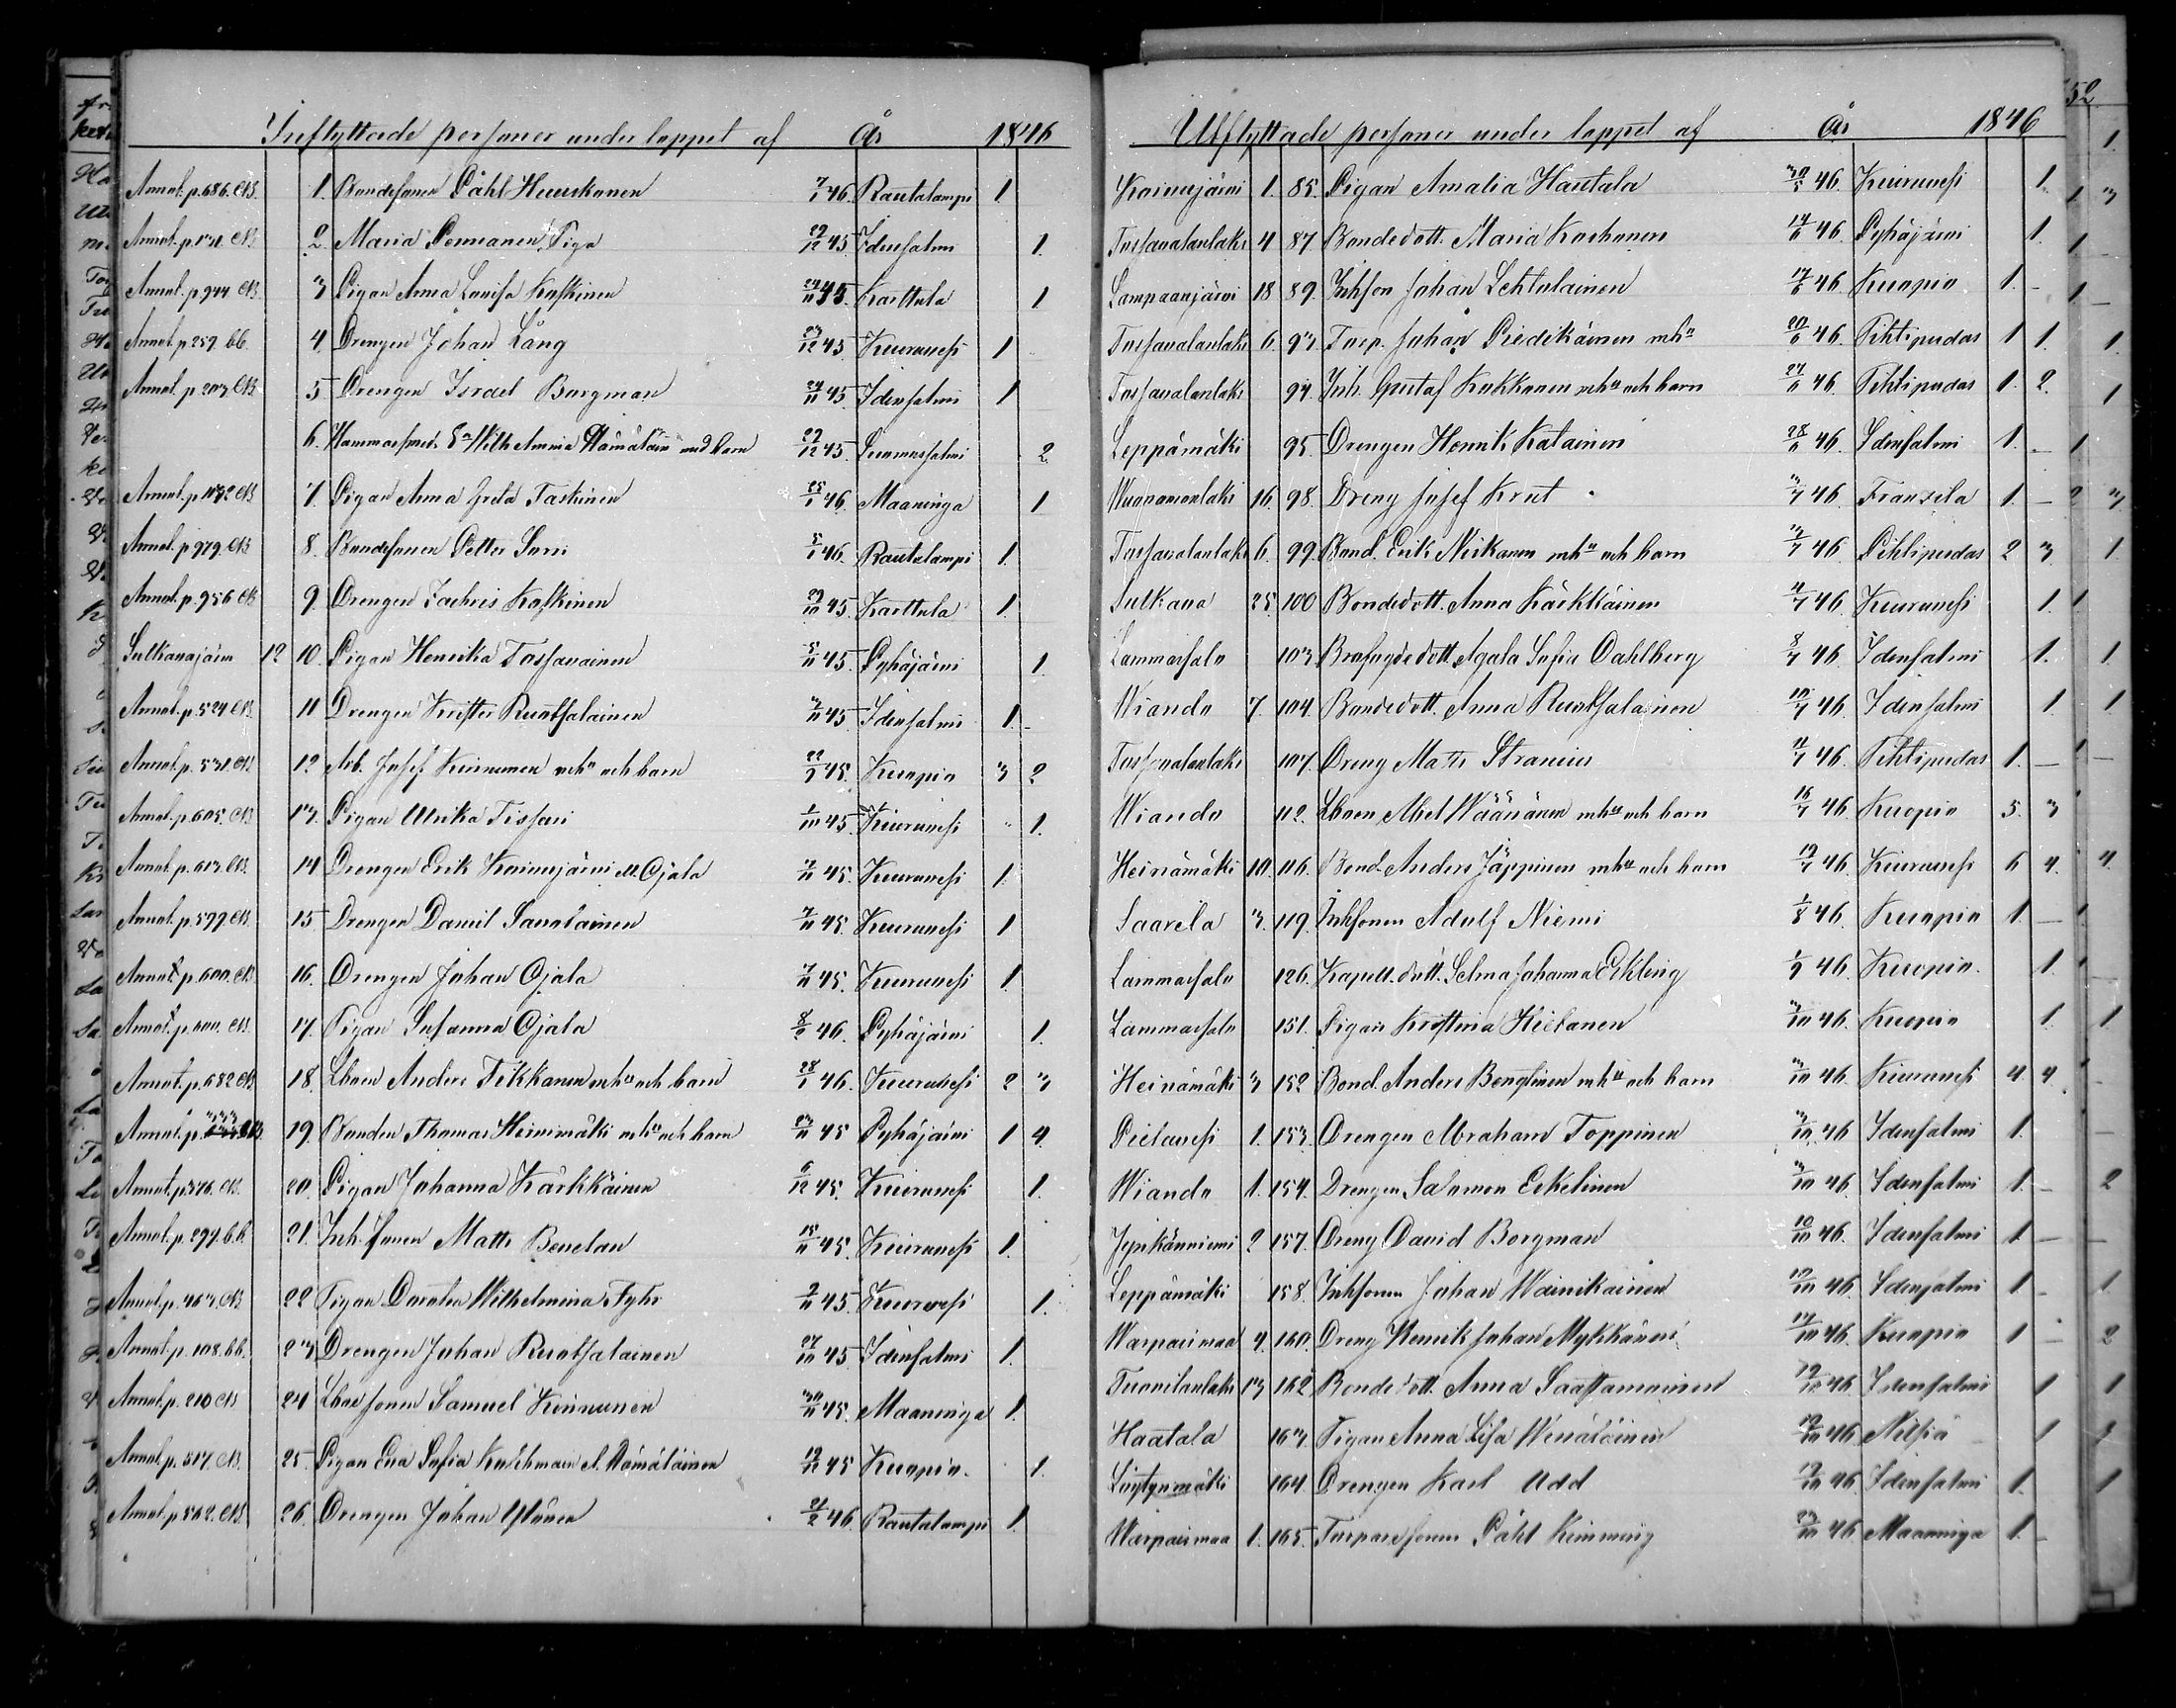 Inflyttade personer under loppet af År 1846
Annot. p. 686. CB. 1. Bondesonen Påhl Huuskanen 7/1 46. Rautalampi 1
Annot. p. 131. CB. 2 Maria Pennanen, Piga 29/12 45 Idensalmi 1.
Annot. p. 944. CB. 3 Pigan Anna Lovisa Koskinen 45. Karttula 1
Annot. p. 257. bb. 4. Drengen Johan Lång 23/12 45 Kiuruvesi 1
Annot. p. 203. CB. 5 Drengen Israel Borgman 24/11 45 Idensalmi 1
6. Hammarsmeds E:a Wilhelmina Hämäläin med barn 29/12 45. 2
Annot. p. CB. 7. Pigan Anna Greta Taskinen 25/1 46. Maaninga 1
Annot. p. 979. CB. 8. Bondesonen Petter Sorri 5/1 46. Rautalampi 1.
Annot. p. 956. CB. 9. Drengen Zachris Koskinen 29/10 45. Karttula 1.
Sulkavajärvi 12 10. Pigan Henrika Tossavainen 5/11 45. Pyhäjärvi 1
Annot. p. 524. CB. 11 Drengen Krister Ruotsalainen 3/11 45. Idensalmi 1.
Annot. p. 531. CB. 12 Arb. Josef Kinnunen mhu och barn 45. Kuopio 3 2
Annot. p. 605. CB. 13. Pigan Ulrika Tissari 1/10 45. Kiuruvesi 1.
Annot. p. 613. CB. 14 Drengen Erik Koivujärvi ell. Ojala 7/11 45. Kiuruvesi 1.
Annot. p. 599. CB. 15 Drengen Daniel Savolainen 7/11 45. Kiuruvesi 1
Annot. p. 600. CB. 16. Drengen Johan Ojala 7/11 45. Kiuruvesi 1.
Annot. p. 600. CB. 17. Pigan Susanna Ojala 8/2 46. Pyhäjärvi 1.
Annot. p. 682. CB. 18. Lboen Anders Tikkanen mhu och barn 28/1 46. Kiuruvesi 2 3
Annot. p. CB. 19. Bonden Thomas Heinimäki mhu och barn 23/11 45 Pyhäjärvi 1 4.
Annot. p. 576. CB. 20. Pigan Johanna Kärkkäinen 6/12 45. Kiuruvesi 1.
Annot. p. 297. bb. 21. Inh. sonen Matts Benelan 15/11 45. Kiuruvesi 1.
Annot. p. 463. CB. 22 Pigan Dorotea Wilhelmina Fyhr 2/11 45. Kiuruvesi 1.
Annot. p. 108. bb. 23 Drengen Johan Ruotsalainen 27/10 45 Idensalmi 1.
Annot. p. 210 CB 24 Lboesonen Samuel Kinnunen 30/11 45. Maaninga 1.
Annot. p. 517. CB. 25. Pigan Eva Sofia ell. Hämäläinen 45 Kuopio. 1.
Annot. p. 562. CB. 26. Drengen Johan Ylönen 21/2 46. Rautalampi 1.
Utflyttade personer under loppet af År 1846
52
Koivujärvi 1. 85. Pigan Amalia Hautala 30/5 46. Kiuruvesi 1.
Tossavalanlaks 4 87 Bondedott. Maria Korhonen 14/6 46. Pyhäjärvi 1.
Lampaanjärvi 18 89. Inhson Johan Lehtolainen 17/6 46. Kuopio 1. -
Tossavalanlaks 6. 93. Torp. Johan Piedikäinen mhu 20/6 46. Pihtipudas 1 1.
Tossavalanlaks 94. Inh. Gustaf Kukkonen mhu och barn 27/6 46. Pihtipudas 1. 2.
Leppämäki 95. Drengen Henrik Katainen 28/6 46. Idensalmi 1. -
16. 98. Dreng Josef Krut 3/7 46. Fransila 1. -
Tossavalanlaks 6. 99. Bond. Erik Niskanen mhu och barn 12/7 46. Pihtipudas 2 3.
Sulkava 25. 100 Bondedott. Anna Kärkkäinen 4/7 46. Kiuruvesi 1.
Lammassalo 103. dott. Agata Sofia Dahlberg 8/7 46. Idensalmi 1.
Wiando 7. 104. Bondedott. Anna Ruotsalainen 10/7 46. Idensalmi 1.
Tossavalanlaks 107. Dreng Matts Stranius 11/7 46. Pihtipudas 1. -
Wiando 112. Lboen Abel Wäänänen mhu och barn 16/7 46. Kuopio 5. 3
Heinämäki 10. 116. Bond. Anders Jäppinen mhu och barn 19/7 46. Kiuruvesi 6 4.
Saarela 3. 119. Inhsonen Adolf Niemi 1/8 46. Kuopio 1. -
Lammassalo 126. Kapell. dott. Selma Johanna Elfving 1/9 46. Kuopio. 1.
Lammassalo 151. Pigan Kristina Hiltunen 3/10 46. Kuopio 1.
Heinämäki 3 152 Bond. Anders Bengtinen mhu och barn 3/10 46. Kiuruvesi 4. 4
Pielavesi 1. 153. Drengen Abraham Toppinen 3/10 46 Idensalmi 1.
Wiando 1. 154. Drengen Salomon Eskelinen 3/10 46. Idensalmi 1. -
Jypikänniemi 2 157. Dreng David Borgman 10/10 46. Idensalmi 1. -
Leppämäki 158. Inhsonen Johan Wainikainen 10/10 46. Idensalmi 1. -
Warpaismaa 4. 160. Dreng Henrik Johan Mykkänen 46. Kuopio 1 -
Tuovilanlaks 13 162 Bondedott. Anna Saastamoinen 19/10 46. Idensalmi 1
Haatala 163. Pigan Anna Lisa Wenäläinen 19/10 46 Nilsiä 1
Löytynmäki 164. Drengen Karl Udd 19/10 46. Idensalmi 1.
Warpaismaa 1. 165. Torparesonen Påhl Kimming 23/10 46 Maaninga 1. -